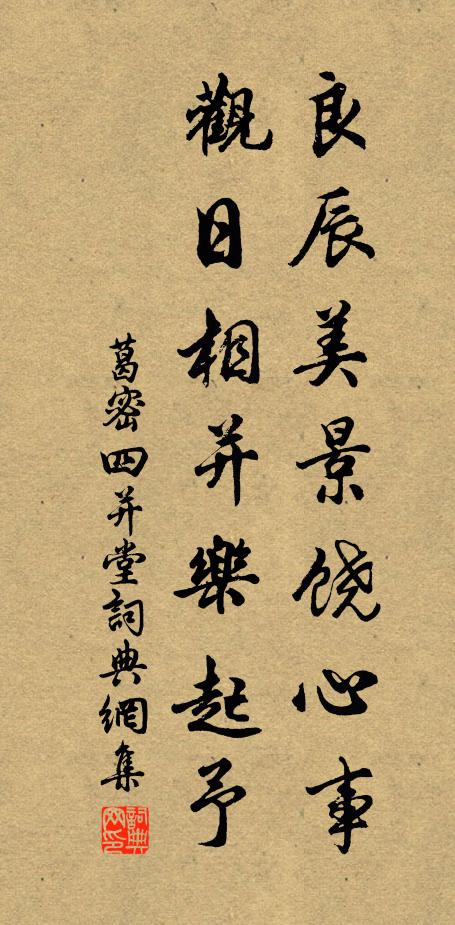 良辰美景饶心事
觀日相并樂起予
葛密四并堂詞典網集
詞典网印